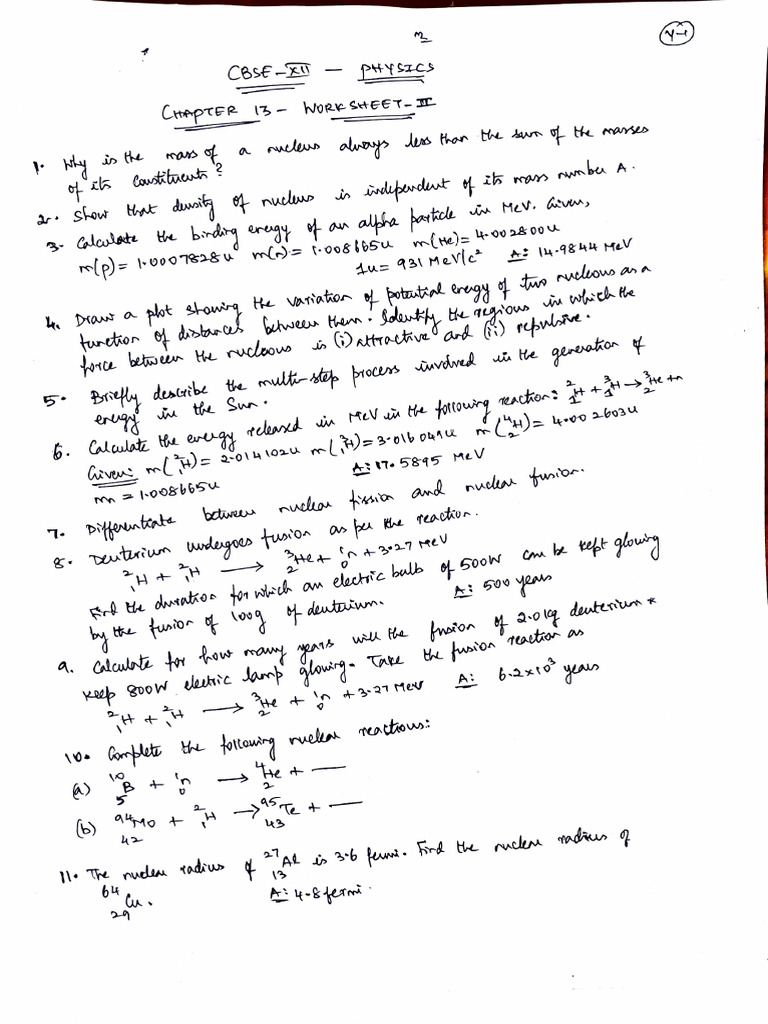 2
V-1
CBSE-XII - PHYSICS
CHAPTER 13 - WORKSHEET-II
1. Why is the mass of a nucleus always less than the sum of the masses
of its constituents?
2. Show that density of nucleus is independent of its mass number A.
3. Calculate the binding energy of an alpha particle in MeV. Given,
m(p) = 1.0007828u m(n) = 1.008665u m(He) = 4.002800u
1u = 931 MeV/c² A: 14.9844 MeV
4. Draw a plot showing the variation of potential energy of two nucleons as a
function of distances between them. Identify the regions in which the
force between the nucleons is (i) attractive and (ii) repulsive.
5. Briefly describe the multi-step process involved in the generation of
energy in the Sun.
6. Calculate the energy released in MeV in the following reaction: ²₁H + ³₁H → ³₂He + n
Given: m(²₁H) = 2.014102u m(³₁H) = 3.016049u m(⁴₂H) = 4.002603u
mn = 1.008665u A: 17.5895 MeV
7. Differentiate between nuclear fission and nuclear fusion.
8. Deuterium undergoes fusion as per the reaction.
²₁H + ²₁H → ³₂He + ¹₀n + 3.27 MeV
Find the duration for which an electric bulb of 500W can be kept glowing
by the fusion of 100g of deuterium. A: 500 years
9. Calculate for how many years will the fusion of 2.0kg deuterium *
keep 800W electric lamp glowing. Take the fusion reaction as
²₁H + ²₁H → ³₂He + ¹₀n + 3.27 MeV A: 6.2×10³ years
10. Complete the following nuclear reactions:
(a) ¹⁰₅B + ¹₀n → ⁴₂He + —
(b) ⁹⁴₄₂Mo + ²₁H → ⁹⁵₄₃Te + —
11. The nuclear radius of ²⁷₁₃Al is 3.6 fermi. Find the nuclear radius of
⁶⁴₂₉Cu. A: 4.8 fermi.